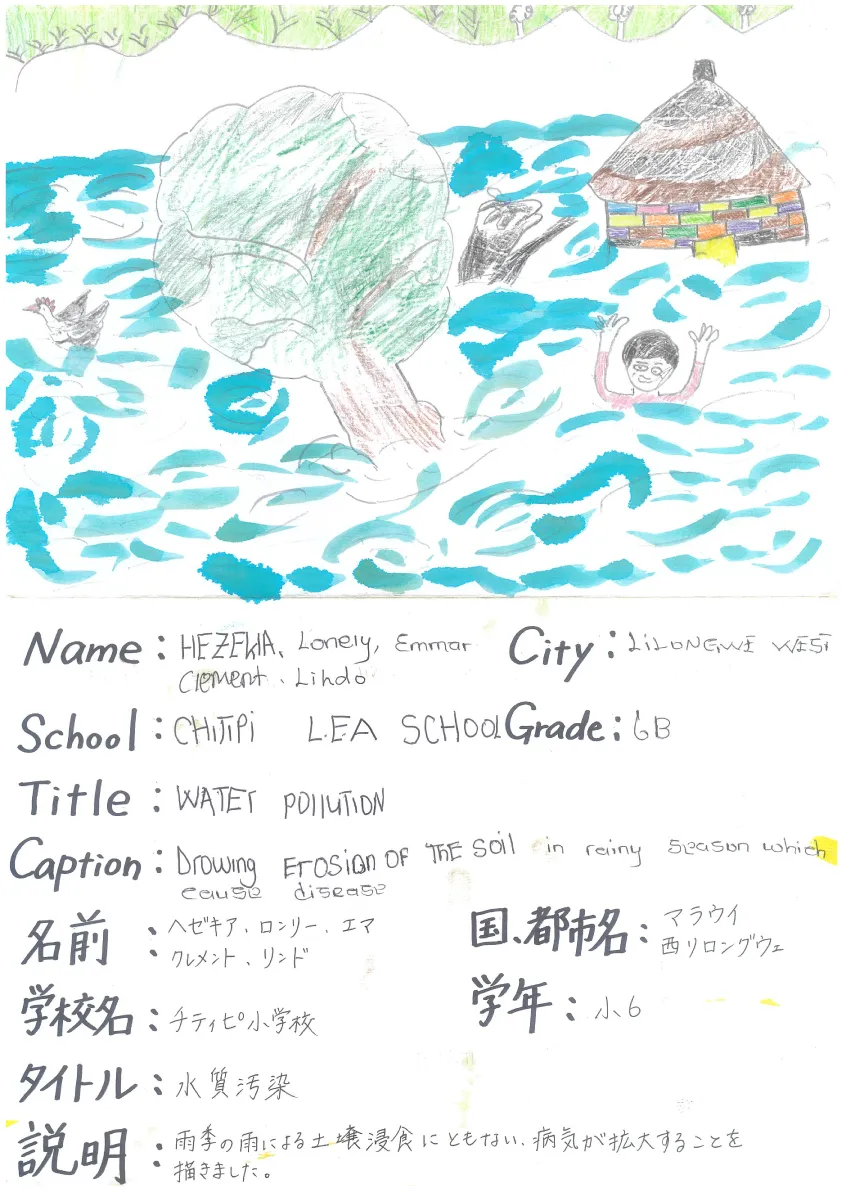 Name: HEZEKIA, Lonely, Emmar
Clement. Lindo
City: LiLONGWE WEST
School: CHITIPI L.E.A SCHOOL
Grade: 6B
Title: WATER POLLUTION
Caption: Drowing EROSION OF THE SOIL in reiny season which
cause disease
名前: ヘゼキア、ロンリー、エマ
クレメント、リンド
国、都市名: マラウイ
西リロングウェ
学校名: チティピ小学校
学年: 小6
タイトル: 水質汚染
説明: 雨季の雨による土壌浸食にともない、病気が拡大することを
描きました。